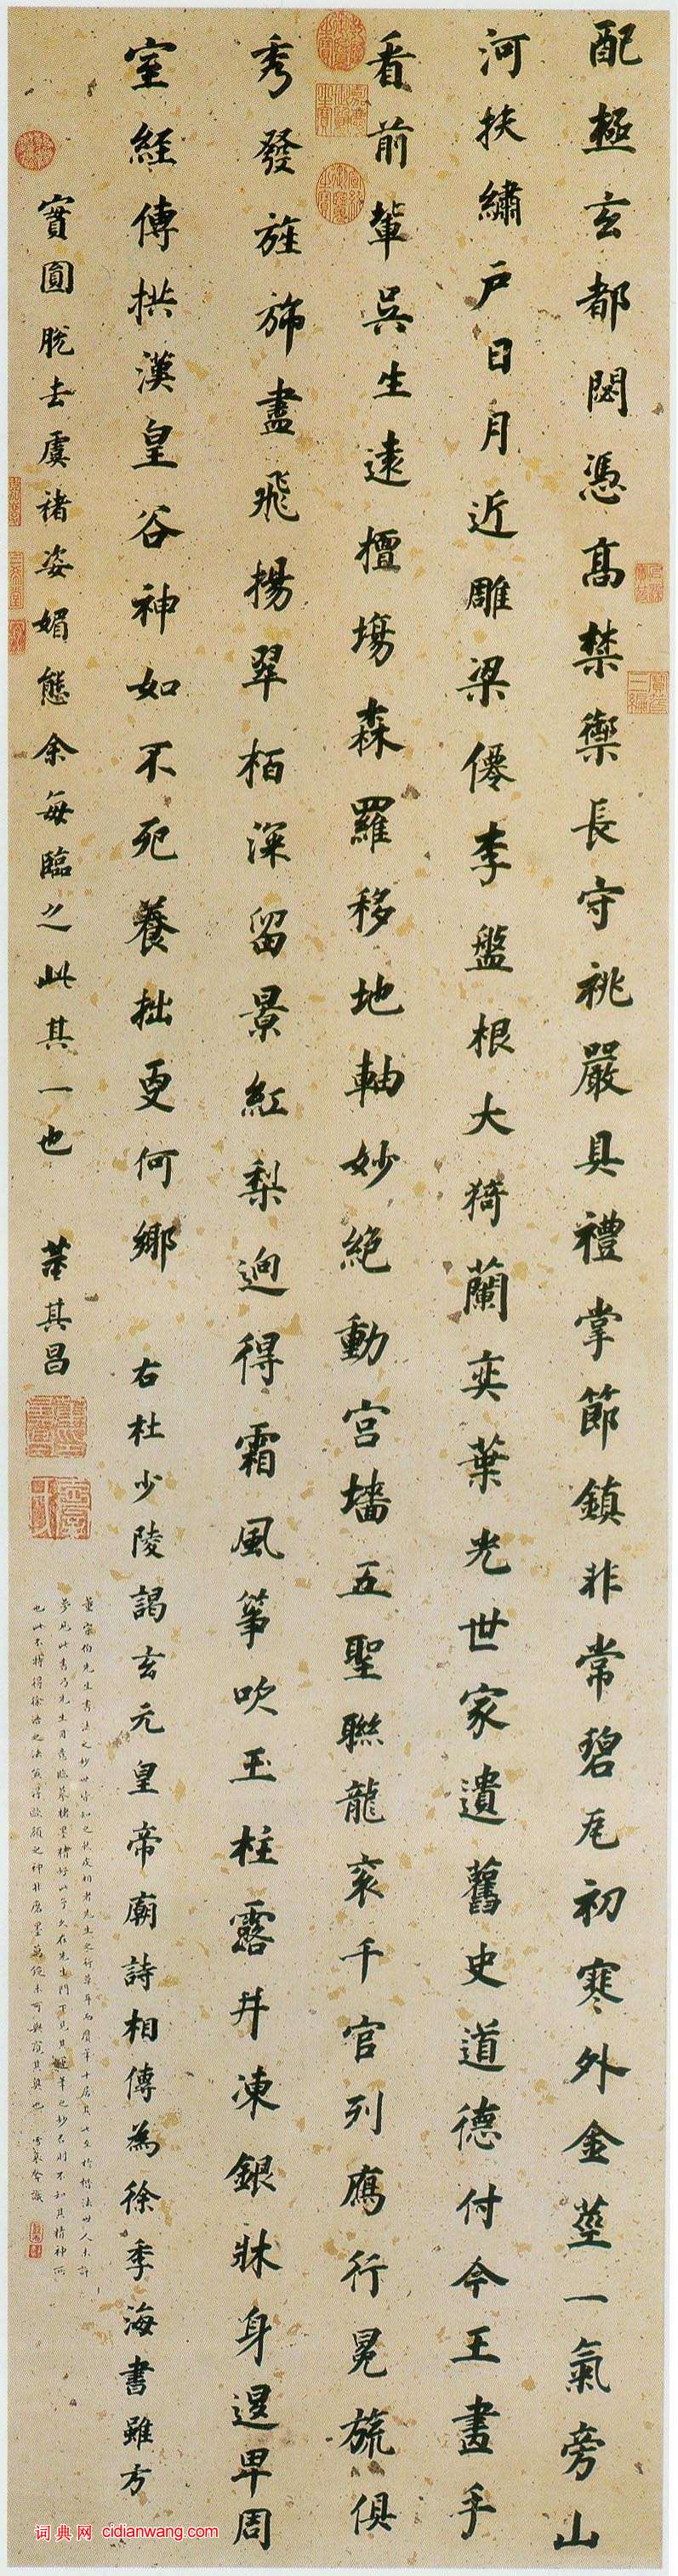 配極玄都閟憑高禁籞長守祧嚴具禮掌節鎮非常碧瓦初寒外金莖一氣旁山
河扶繡戶日月近雕梁僊李盤根大猗蘭奕葉光世家遺舊史道德付今王畫手
看前輩吳生遠擅塲森羅移地軸妙絕動宮墻五聖聯龍衮千官列鴈行冕旒俱
秀發旌旆盡飛揚翠栢深留景紅梨迥得霜風箏吹玉柱露井凍銀牀身退卑周
室經傳拱漢皇谷神如不死養拙更何鄉 右杜少陵謁玄元皇帝廟詩相傳為徐季海書雖方
實圓脫去虞褚姿媚態余每臨之此其一也 董其昌
詞典网 cidianwang.com